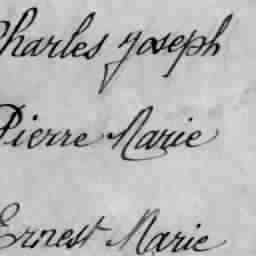 Charles Joseph
Pierre Marie
Ernest Marie